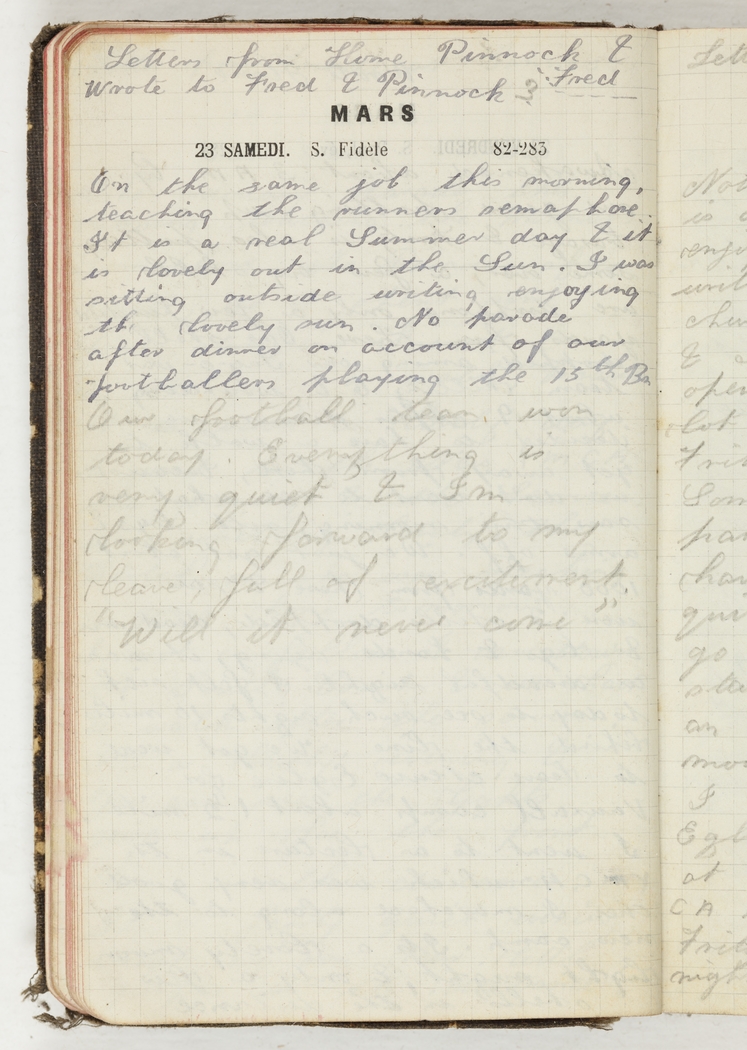 Letters from Home Pinnock &
Wrote to Fred & Pinnock Fred
MARS
23 SAMEDI. S. Fidèle 82-283
On the same job this morning,
teaching the runners semaphore.
It is a real Summer day & it
is lovely out in the Sun. I was
sitting outside writing enjoying
the lovely sun. No parade
after dinner on account of our
footballers playing the 15th Bn
Our football team won
today. Everything is
very quiet & Im
looking forward to my
leave, full of excitement.
"Will it never come"